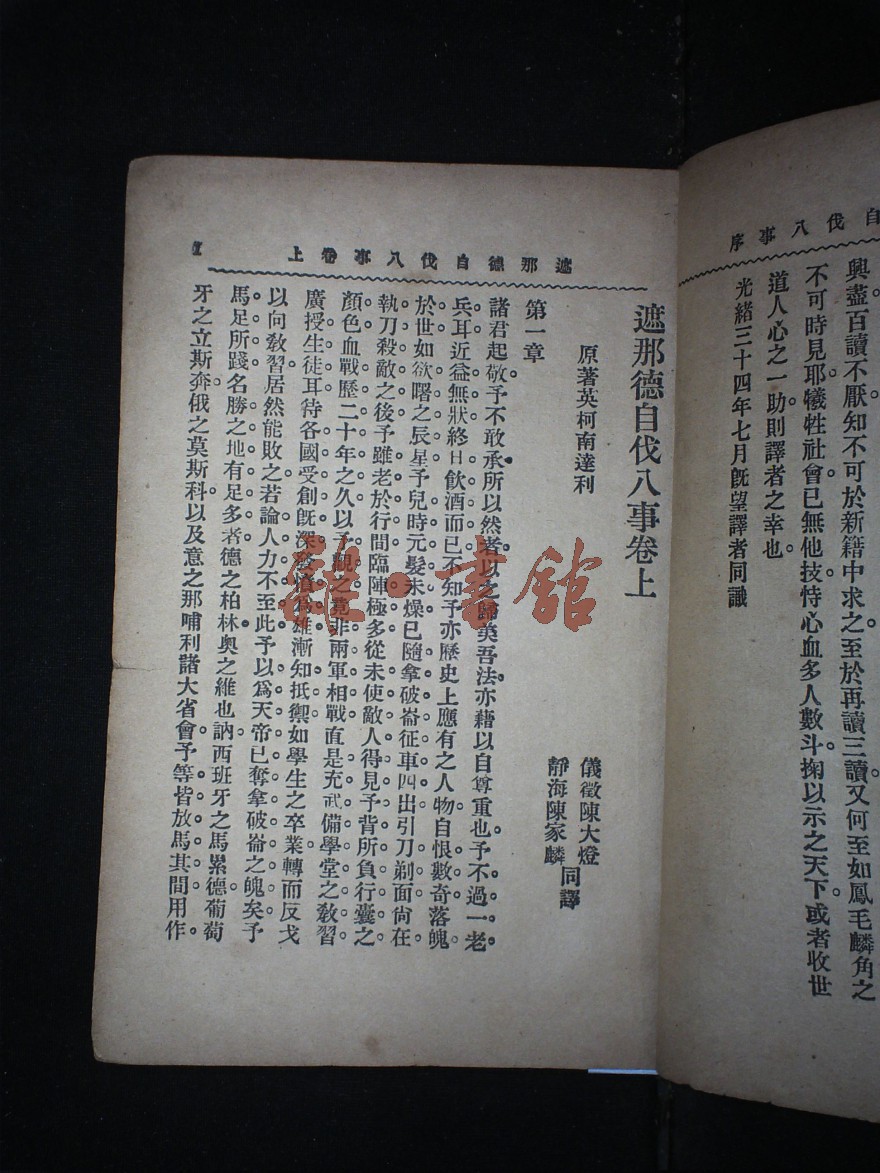 自伐八事序
興盡百讀不厭知不可於新籍中求之至於再讀三讀又何至如鳳毛麟角之
不可時見耶犧牲社會已無他技恃心血多人數斗掬以示之天下或者收世
道人心之一助則譯者之幸也
光緒三十四年七月旣望譯者同識
遮那德自伐八事卷上
遮那德自伐八事卷上
原著英柯南達利
儀徵陳大燈
靜海陳家麟
同譯
第一章
諸君起敬予不敢承所以然者以之歸英吾法亦藉以自尊重也予不過一老
兵耳近益無狀終日飲酒而已不知予亦歷史上應有之人物自恨數奇落魄
於世如欲曙之辰星予兒時元髮未燥已隨拿破崙征車四出引刀剃面尙在
執刀殺敵之後予雖老於行間臨陣極多從未使敵人得見予背所負行囊之
顏色血戰歷二十年之久以予觀之竟非兩軍相戰直是充武備學堂之敎習
廣授生徒耳待各國受創旣深發憤爲雄漸知抵禦如學生之卒業轉而反戈
以向敎習居然能敗之若論人力不至此予以爲天帝已奪拿破崙之魄矣予
馬足所踐名勝之地有足多者德之柏林奧之維也訥西班牙之馬累德葡萄
牙之立斯奔俄之莫斯科以及意之那哺利諸大省會予等皆放馬其間用作
雜·書館